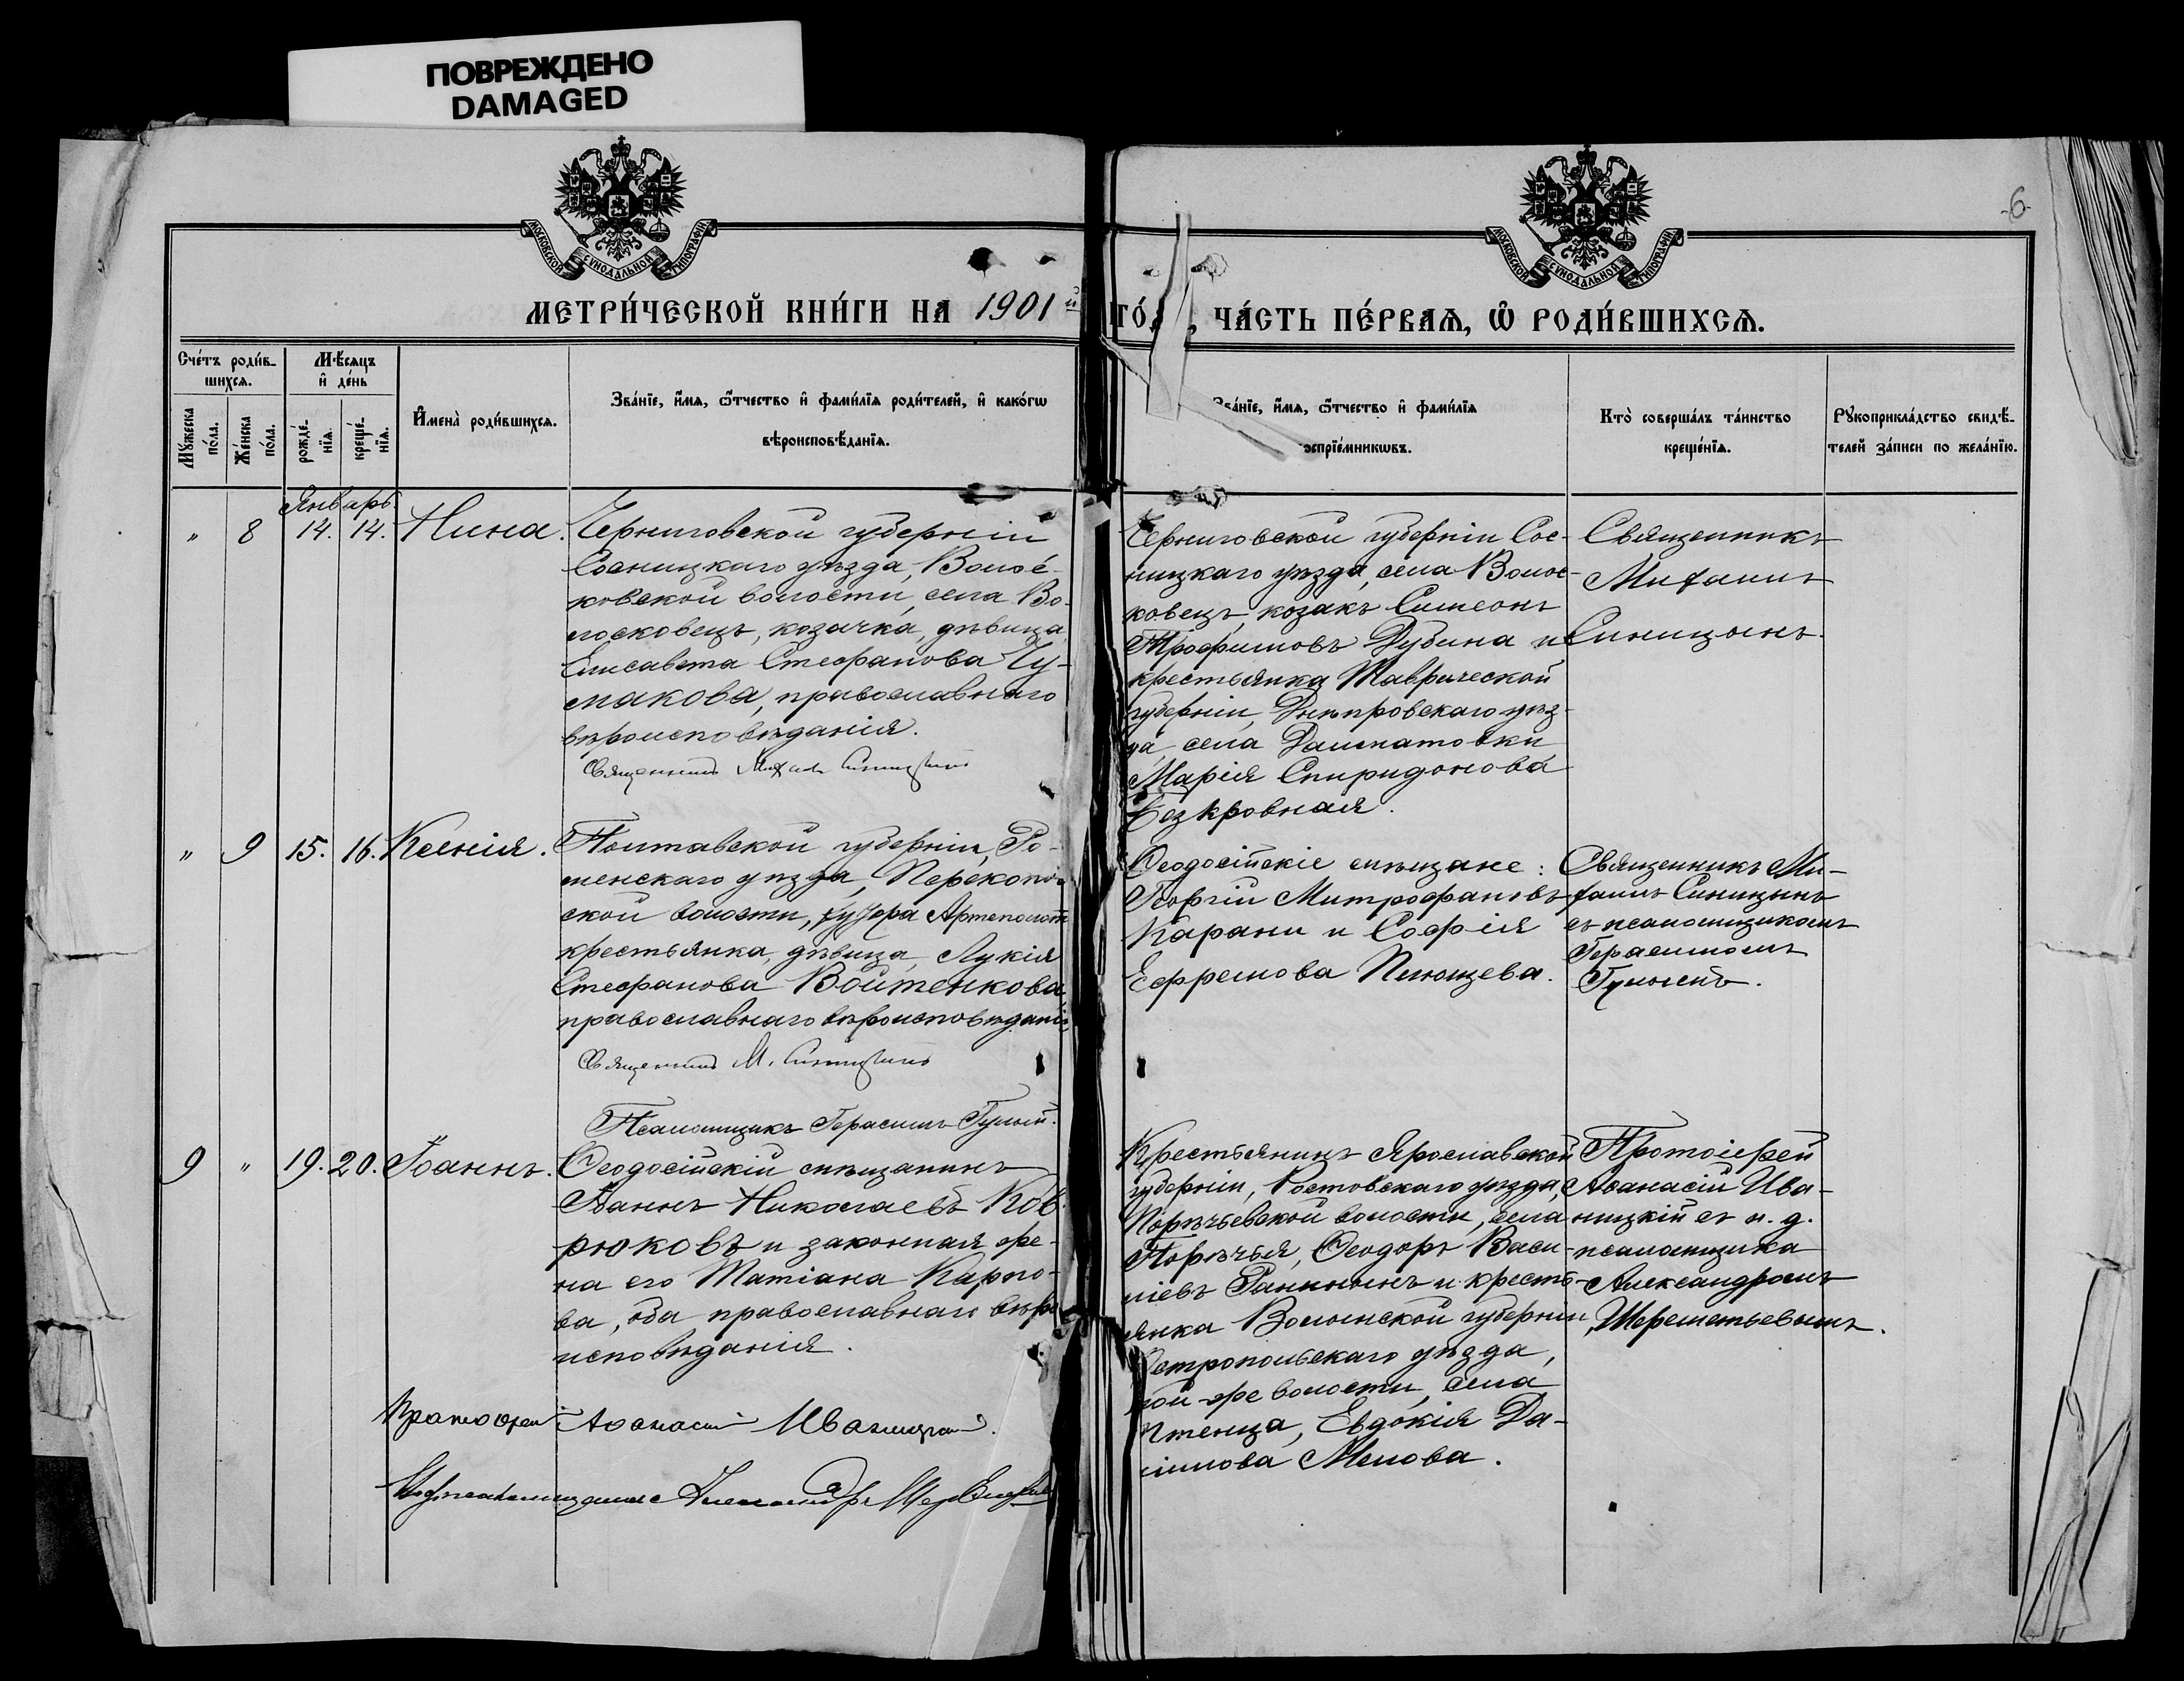 ПОВРЕЖДЕНО
DAMAGED
-6-
МОСКОВСКОЙ СѴНОДАЛЬНОЙ ТИПОГРАФІИ
МОСКОВСКОЙ СѴНОДАЛЬНОЙ ТИПОГРАФІИ
МЕТРИ́ЧЕСКОЙ КНИ́ГИ НА 1901й ГО́ , ЧА́СТЬ ПЕ́РВАѦ, Ѡ҆ РОДИ́ВШИХСѦ.
Сче́тъ роди́в-
шихсѧ.
Мѣ́сяцъ
и҆ де́нь
Мꙋ́жеска
по́ла.
Же́нска
по́ла.
рожде́-
нїѧ.
креще́-
нїѧ.
И҆мена̀ роди́вшихсѧ.
Зва́нїе, и҆́мѧ, ѻ҆́тчество и҆ фами́лїѧ роди́телей, и҆ како́гѡ
вѣроисповѣ́данїѧ.
Зва́нїе, и҆́мѧ, ѻ҆́тчество и҆ фами́лїѧ
эспрїе́мникѡвъ.
Кто̀ соверша́лъ та́инство
креще́нїѧ.
Рꙋкоприкла́дство свидѣ́-
телей за́писи по жела́нїю.
Январь
" 8 14. 14. Нина.
Черниговской губерніи
Сосницкаго уѣзда, Волос-
ковской волости, села Во-
лосковецъ, козачка, дѣвица
Елисавета Стефанова Чу-
макова, православнаго
вѣроисповѣданія.
Священникъ Михаилъ Синицынъ
Черниговской губерніи Сос-
ницкаго уѣзда, села Волос-
ковецъ, козакъ Симеонъ
Трофимовъ Дубина и
крестьянка Таврической
губерніи, Днѣпровскаго уѣз-
да села Далматовки
Марія Спиридонова
Безкровная.
Священникъ
Михаилъ
Синицынъ.
" 9 15. 16. Ксенія.
Полтавской губерніи, Ро-
менскаго уѣзда, Перекопов-
ской волости, хутора Артеполот
крестьянка, дѣвица, Лукія
Стефанова Войтенкова,
православнаго вѣроисповѣданія
Священникъ М. Синицынъ
Псаломщикъ Герасимъ Гулый.
Ѳеодосійскіе мѣщане:
Георгій Митрофановъ
Карани и Софія
Ефремова Плющева.
Священникъ Ми-
хаилъ Синицынъ
съ псаломщикомъ
Герасимомъ
Гулымъ.
9 " 19. 20. Іоаннъ.
Ѳеодосійскій мѣщанинъ
Іоаннъ Николаевъ Ков-
рюковъ и законная же-
на его Татіана Карпо-
ва, оба православнаго вѣро
исповѣданія.
Протоіерей Аѳанасій Иваницкій.
Александръ
Крестьянинъ Ярославской
губерніи, Ростовскаго уѣзда,
Порѣчьевской волости, села
Порѣчья, Ѳеодоръ Васи-
ліевъ и кресть-
янка Волынской губерніи,
стропольскаго уѣзда,
той-же волости, села
птенца, Евдокія Да-
ніилова Мелова.
Протоіерей
Аѳанасій Ива-
ницкій съ и. д.
псаломщика
Александромъ
Шереметьевымъ.